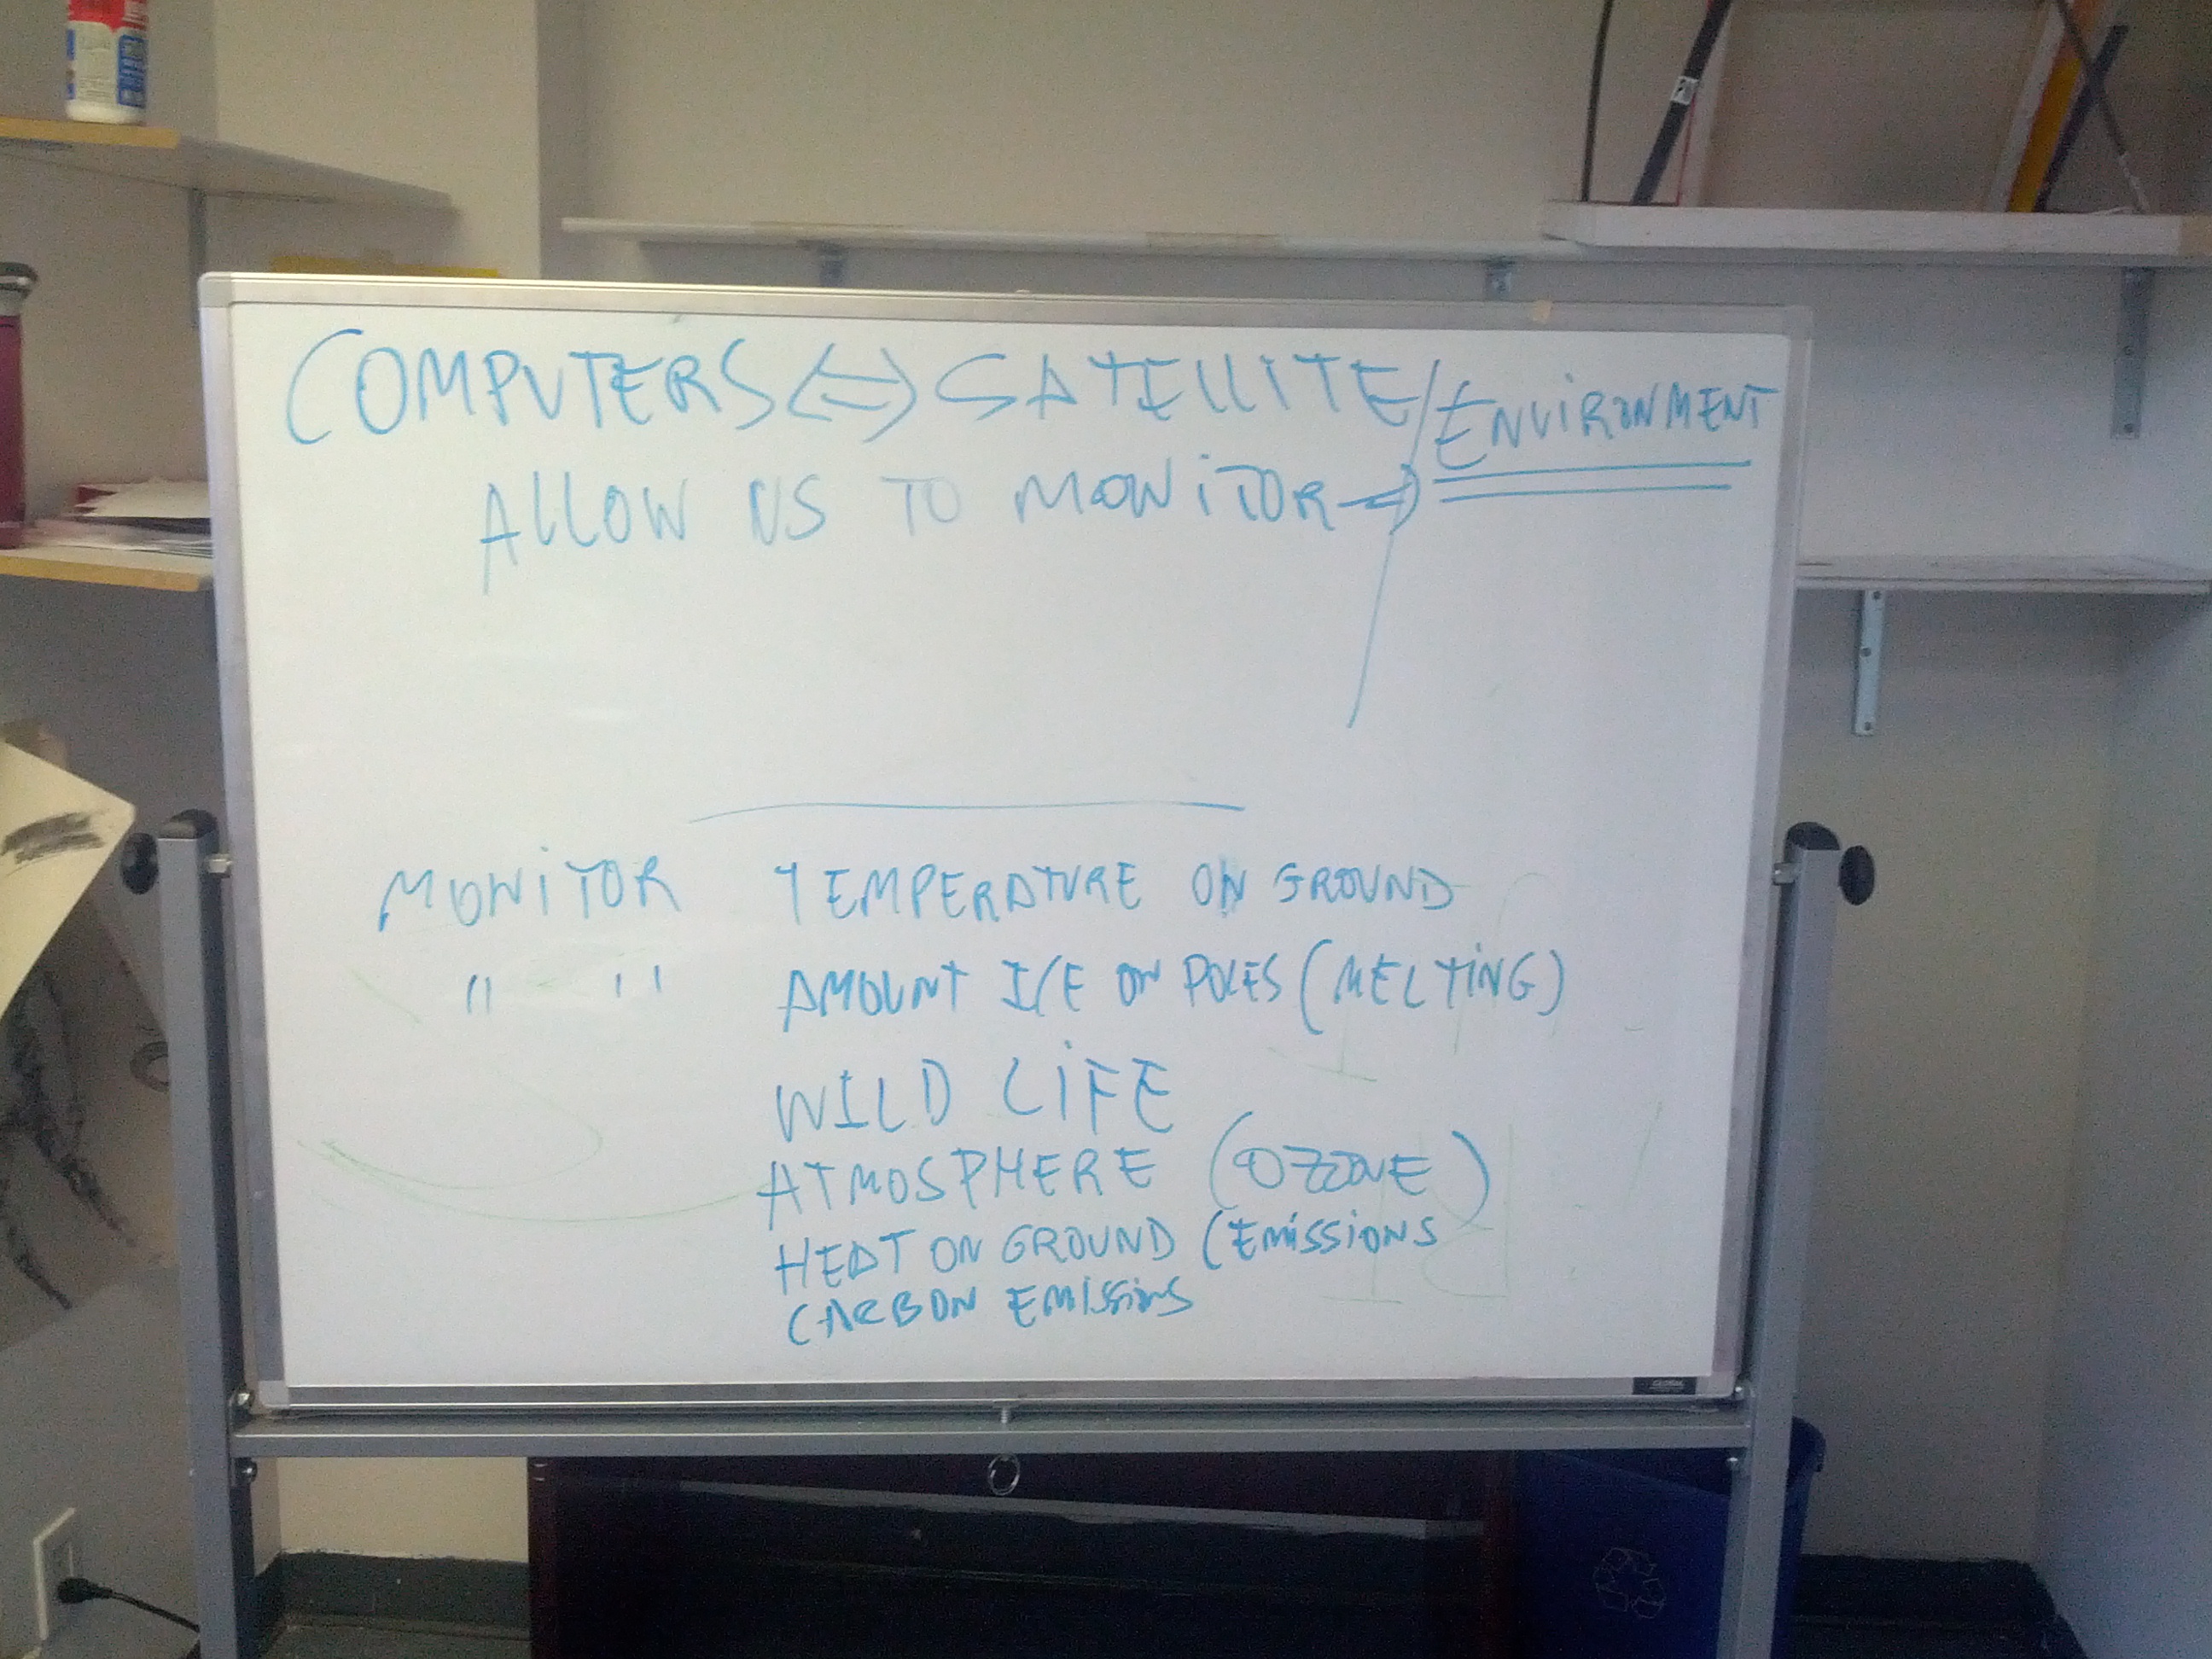 COMPUTERS <=> SATELLITE / ENVIRONMENT
ALLOW US TO MONITOR =>
MONITOR TEMPERATURE ON GROUND
" " AMOUNT ICE ON POLES (MELTING)
WILD LIFE
ATMOSPHERE (OZONE)
HEAT ON GROUND (EMISSIONS
CARBON EMISSIONS